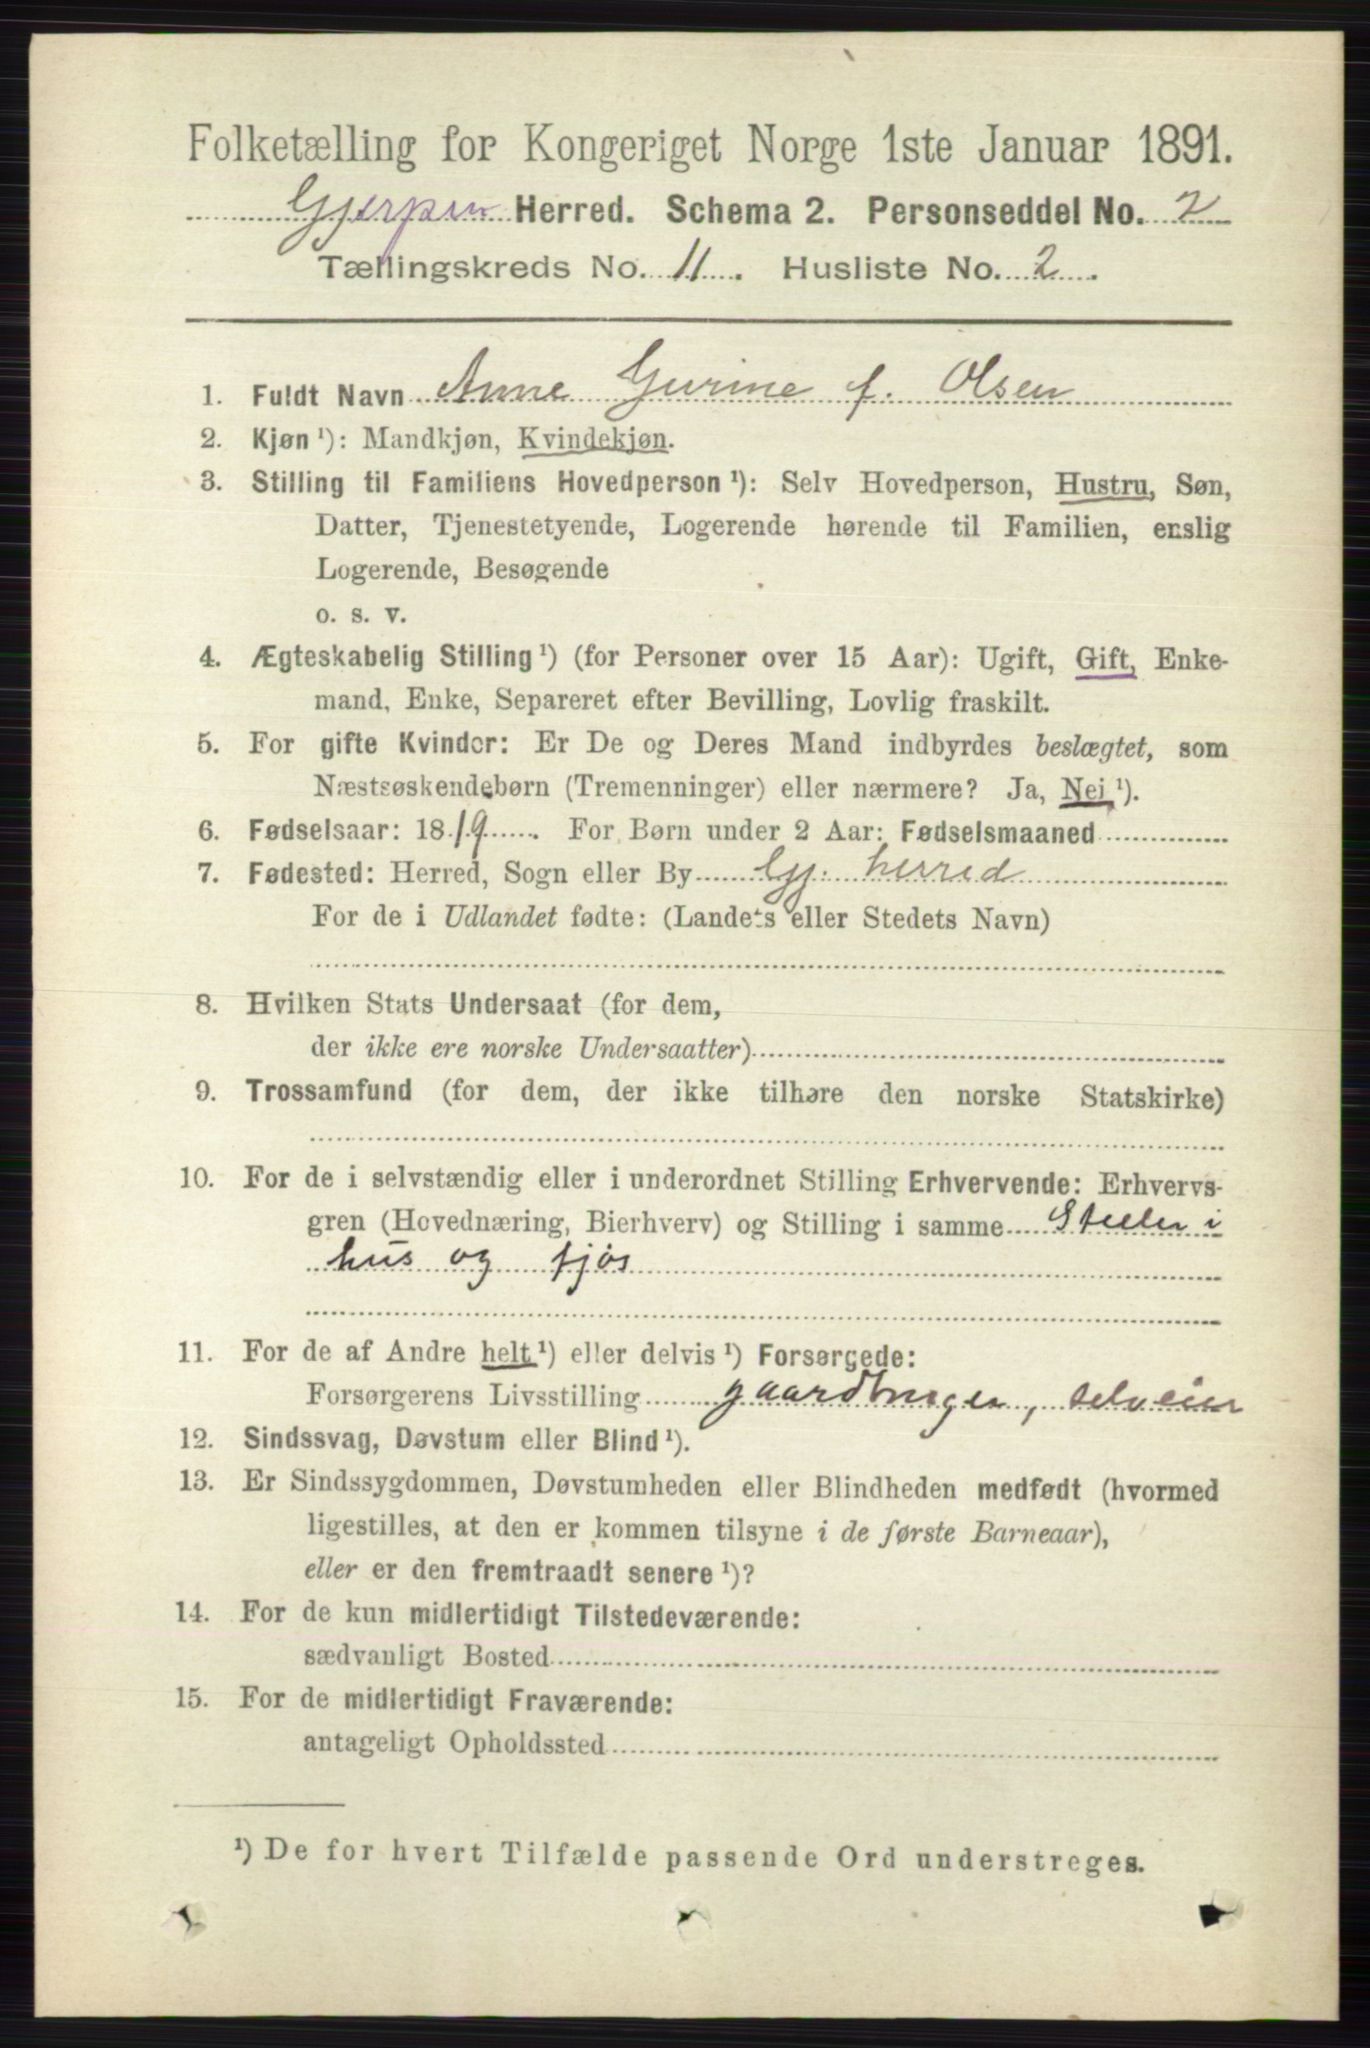 Folketælling for Kongeriget Norge 1ste Januar 1891.
Gjerpen Herred. Schema 2. Personseddel No. 2
Tællingskreds No. 11. Husliste No. 2.
1. Fuldt Navn Anne Gurine f. Olsen
2. Kjøn ¹): Mandkjøn, Kvindekjøn.
3. Stilling til Familiens Hovedperson ¹): Selv Hovedperson, Hustru, Søn,
Datter, Tjenestetyende, Logerende hørende til Familien, enslig
Logerende, Besøgende
o. s. v.
4. Ægteskabelig Stilling ¹) (for Personer over 15 Aar): Ugift, Gift, Enke-
mand, Enke, Separeret efter Bevilling, Lovlig fraskilt.
5. For gifte Kvinder: Er De og Deres Mand indbyrdes beslægtet, som
Næstsøskendebørn (Tremenninger) eller nærmere? Ja, Nei ¹).
6. Fødselsaar: 1819. For Børn under 2 Aar: Fødselsmaaned
7. Fødested: Herred, Sogn eller By Gj. herred
For de i Udlandet fødte: (Landets eller Stedets Navn)
8. Hvilken Stats Undersaat (for dem,
der ikke ere norske Undersaatter)
9. Trossamfund (for dem, der ikke tilhøre den norske Statskirke)
10. For de i selvstændig eller i underordnet Stilling Erhvervende: Erhvervs-
gren (Hovednæring, Bierhverv) og Stilling i samme Steller i
hus og fjøs
11. For de af Andre helt ¹) eller delvis ¹) Forsørgede:
Forsørgerens Livsstilling gaardbruger, selveier
12. Sindssvag, Døvstum eller Blind ¹).
13. Er Sindssygdommen, Døvstumheden eller Blindheden medfødt (hvormed
ligestilles, at den er kommen tilsyne i de første Barneaar),
eller er den fremtraadt senere ¹)?
14. For de kun midlertidigt Tilstedeværende:
sædvanligt Bosted
15. For de midlertidigt Fraværende:
antageligt Opholdssted
¹) De for hvert Tilfælde passende Ord understreges.